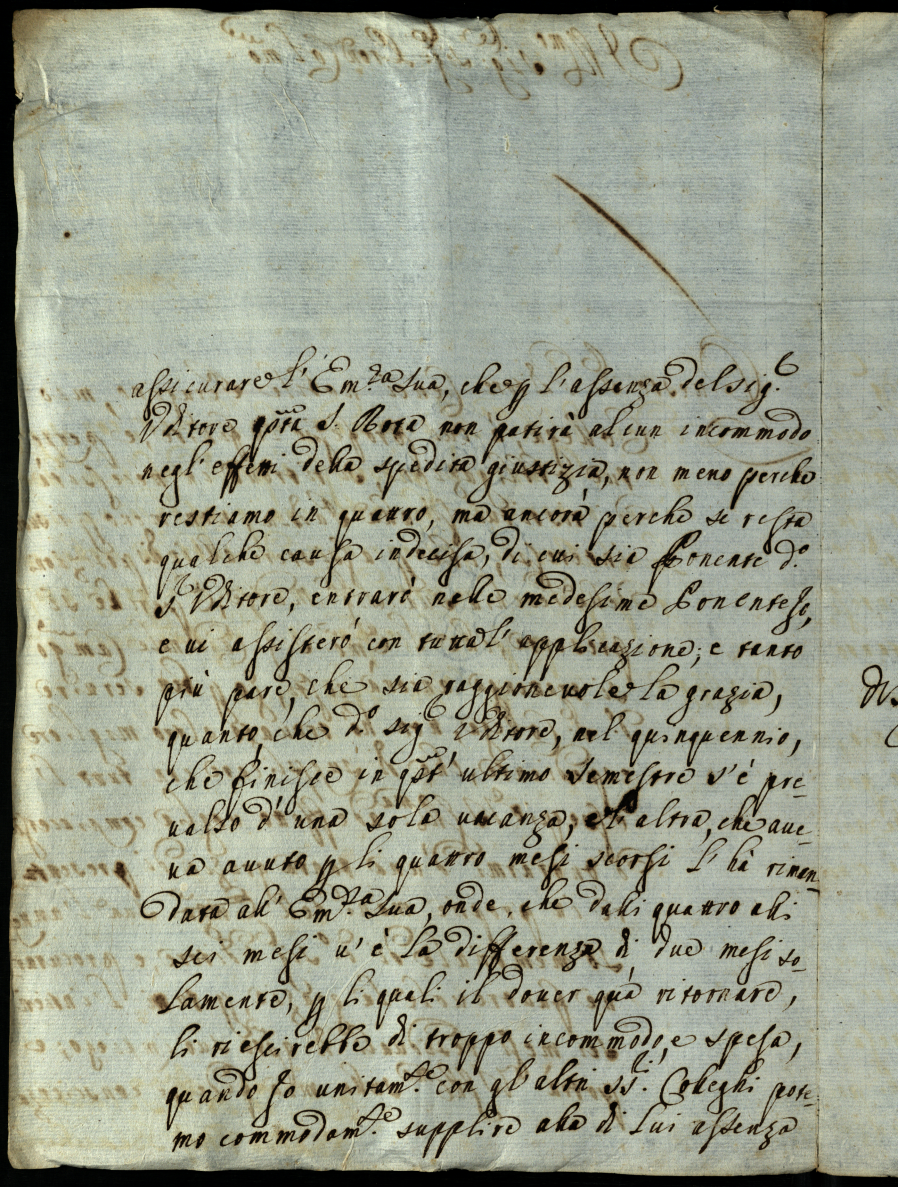 assicurare l'Em.za Sua, che p l'assenza del Sig.e
Uditore qsta S. Rota non patirà alcun incommodo
negl'effetti della spedita giustizia, non meno perche
restiamo in quattro, ma ancora perche se resta
qualche causa indecisa, di cui sia Ponente d.o
S.r Uditore, entrarò nelle medesime Ponente Io,
e vi assisterò con tutta l'applicazione; e tanto
più pare, che sia raggionevole la grazia,
quanto, che d.o Sig.e Uditore, nel quinquennio,
che finisce in qst'ultimo semestre s'è pre-
valso d'una sola vacanza, e l'altra, che ave-
va avuto p li quattro mesi scorsi l'hà riman-
data all'Em.za Sua, onde, che dalli quattro alli
sei mesi v'è la differenza di due mesi so-
lamente, p li quali il dover quà ritornare,
li riescirebbe di troppo incommodo, e spesa,
quando Io unitam.te con gl'altri SS.ri Colleghi pote-
mo commodam.te supplire alla di Lui assenza